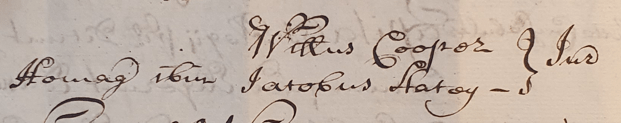 Willus Cooper } Jur
Homag ibm Jacobus Statey -